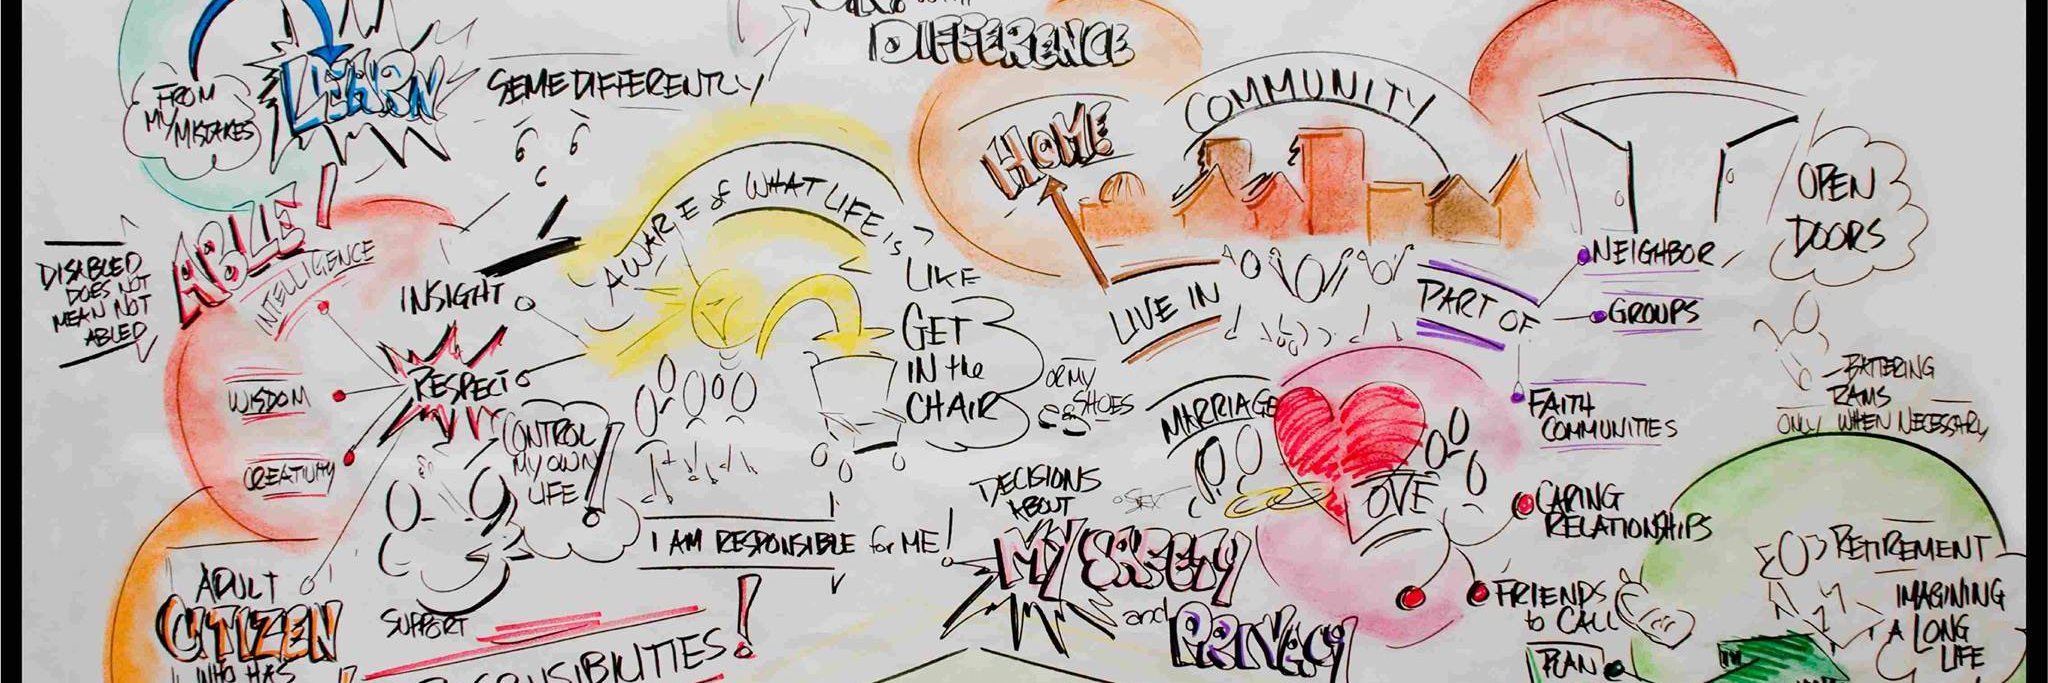 DIFFERENCE
FROM
MY MISTAKES
LEARN
SEME DIFFERENTLY
ABLE!
DISABLED
DOES NOT
MEAN NOT
ABLED
INTELLIGENCE
INSIGHT
RESPECT
WISDOM
CREATIVITY
ADULT
CITIZEN
WHO HAS
CONTROL
MY OWN
LIFE
SUPPORT
AWARE of WHAT LIFE is
LIKE
GET
IN the
CHAIR
OR MY
SHOES
I AM RESPONSIBLE for ME!
HOME
COMMUNITY
LIVE IN
PART OF
NEIGHBOR
GROUPS
FAITH
COMMUNITIES
OPEN
DOORS
BATTERING
RAMS
ONLY WHEN NECESSARY
MARRIAGE
SEX
LOVE
DECISIONS
ABOUT
MY SAFETY
and
PRIVACY
CARING
RELATIONSHIPS
FRIENDS
to CALL
PLAN
RETIREMENT
IMAGINING
A LONG
LIFE